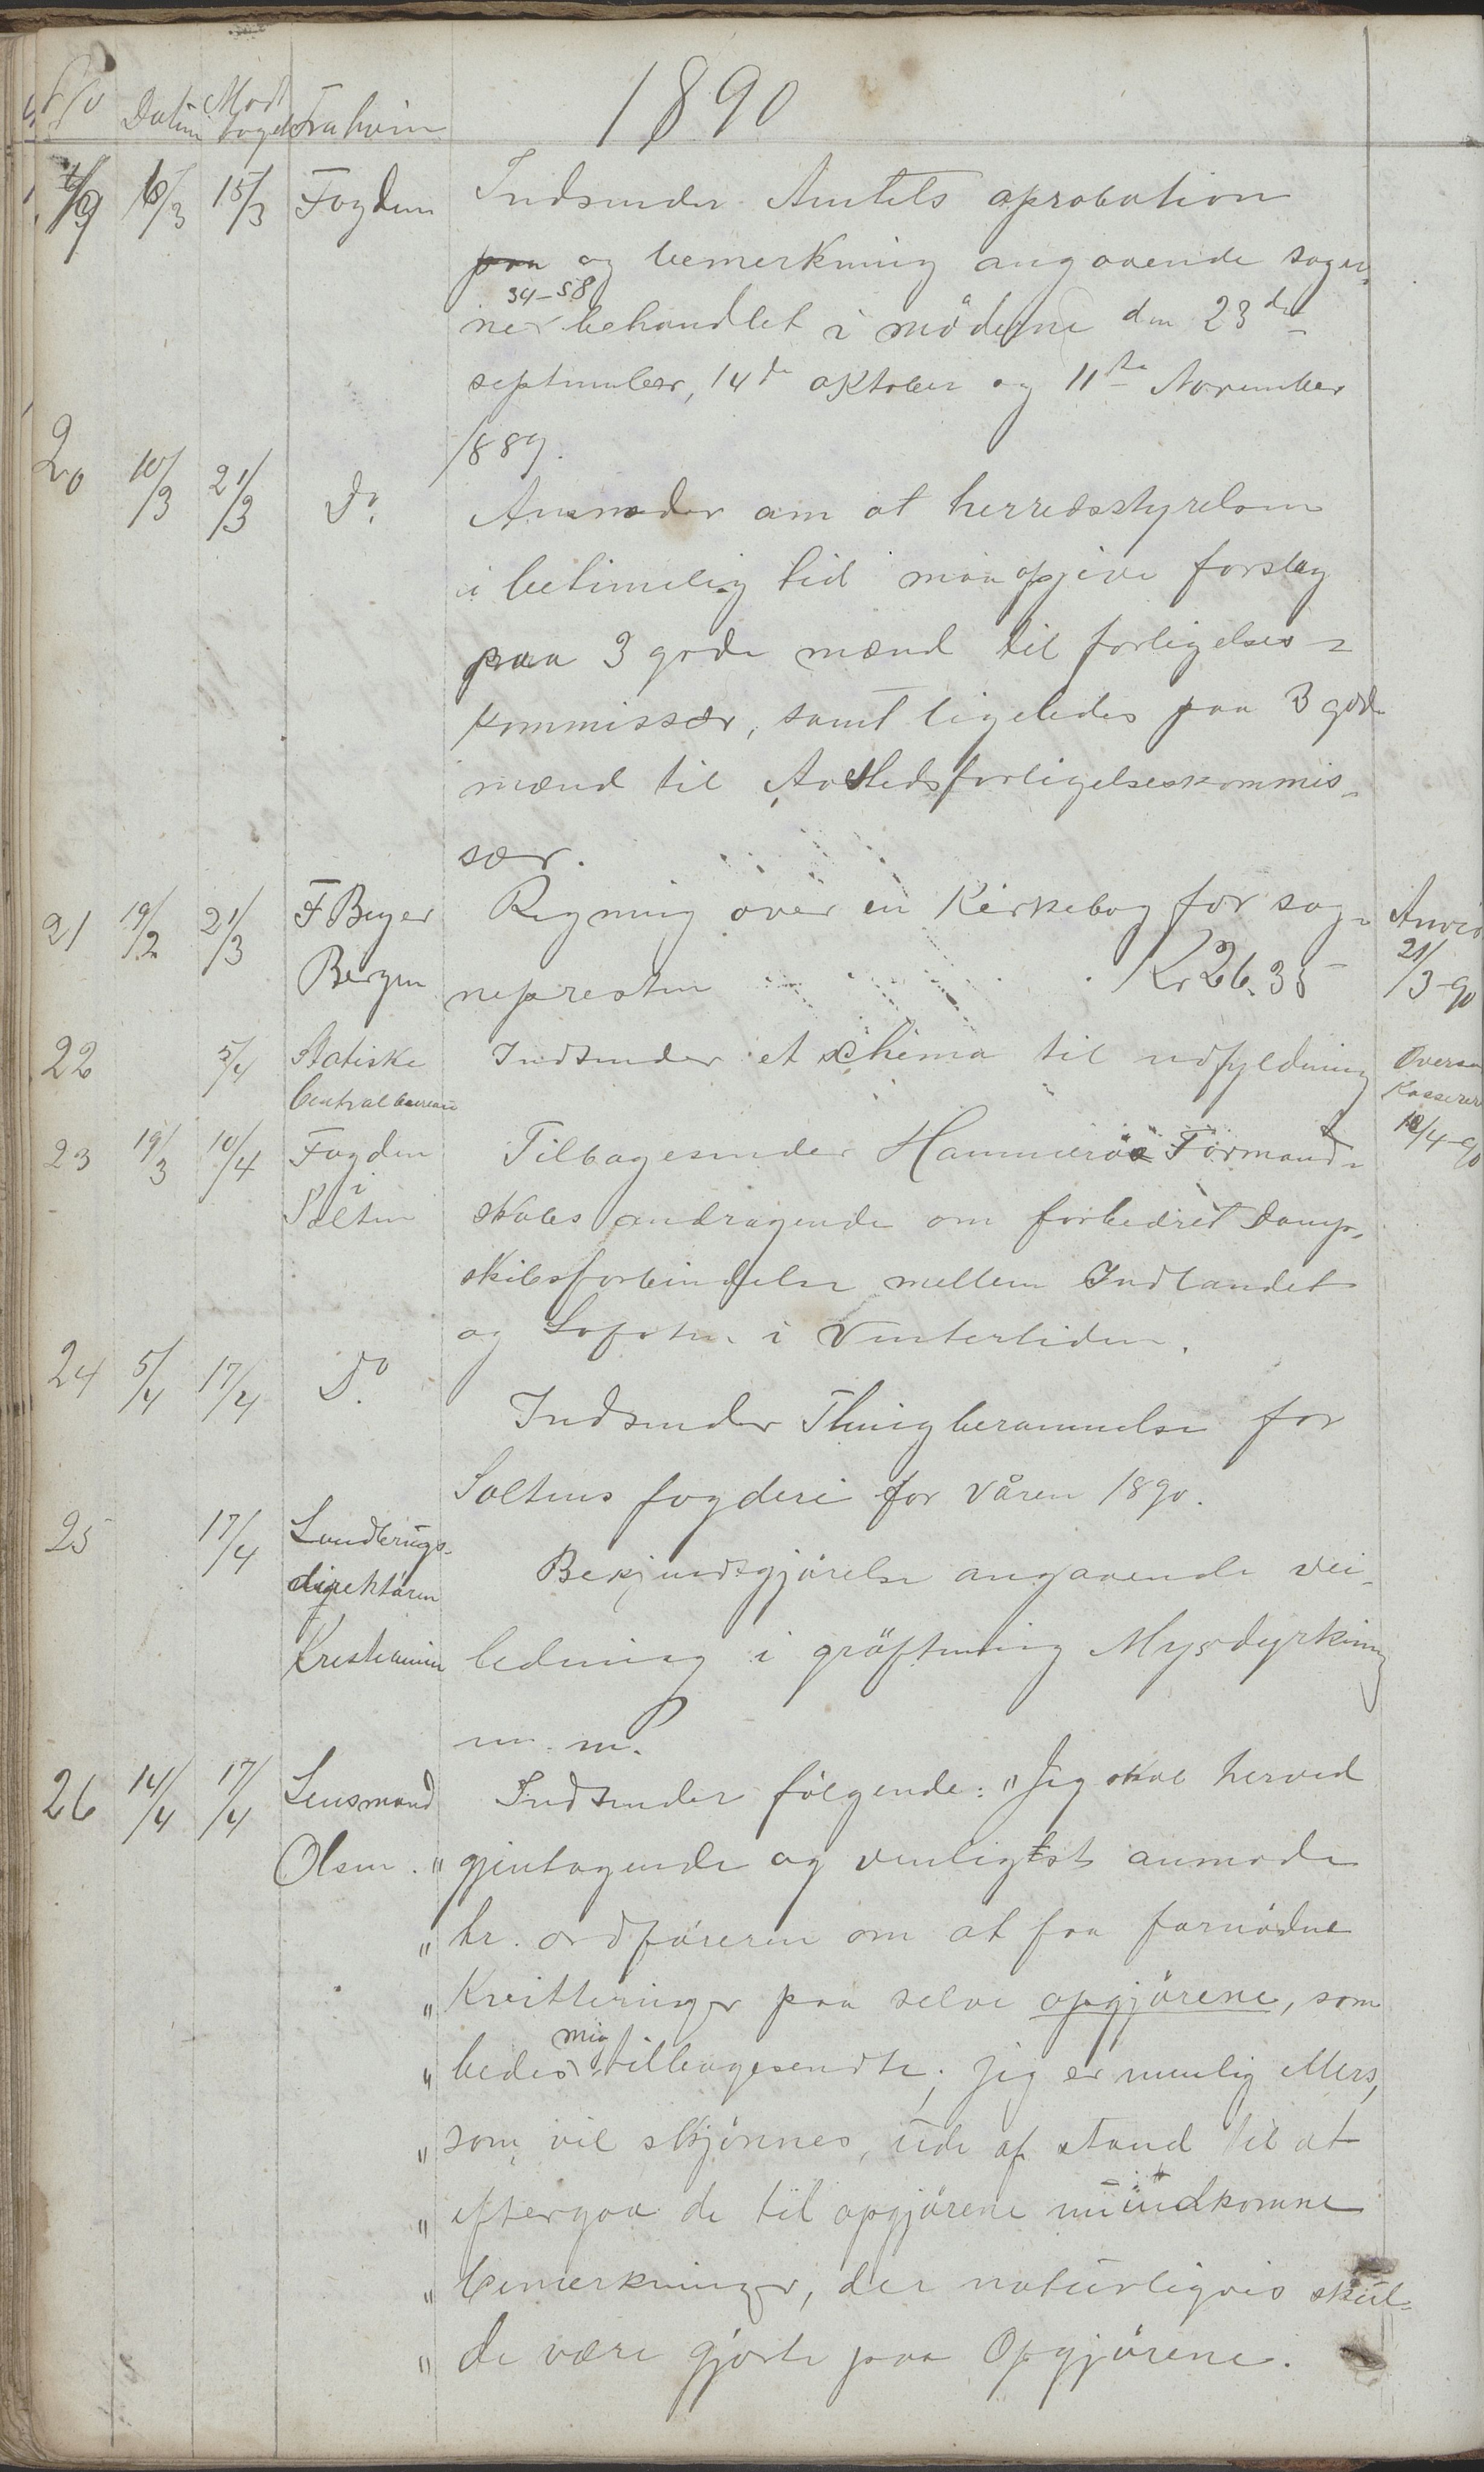 1890
No Datum Mod tagelse Fra hvem
19 6/3 15/3 Fogden Indsender Amtets aprobation
paa og bemerkning angaaende sager-
34-58
ne behandlet i möderne den 23de
september, 14de oktober og 11te November
1889.
20 10/3 21/3 Do. Anmoder om at herredsstyrelsen
i betimelig tid maa opgive forslag
paa 3 gode mænd til forligelses-
kommissær, samt ligeledes paa 3 gode
mænd til Aastedsforligelseskommis-
sær.
21 19/2 21/3 F Beyer Regning över en Kirkebog for sog- Anvis
Bergen nepresten Kr 26.35 21/3-90
22 5/4 Statiske Indsender et schema til udfyldning Oversen
Centralbureau Kasserer
23 19/3 10/4 Fogden Tilbagesender Hammerös Formand- 12/4-90
i
Salten skabs andragende om forbedret damp-
skibsforbindelse mellem Indlandet
og Lofoten i Vintertiden.
24 5/4 17/4 Do.
Indsender Thingberammelse for
Saltens fogderi for Våren 1890.
25 17/4 Landbrugs-
direktören Bekjendtgjörelse angaaende vei-
Kristiania ledning i gröftning Myrdyrkning
m. m.
26 14/4 17/4 Lensmand Indsender fölgende: "Jeg skal herved
Olsen. " gjentagende og venligst anmode
" hr. ordföreren om at faa fornödne
" Kvitteringer paa selve opgjörene, som
mig
" bedes tilbagesendte; jeg er nemlig ellers,
" som vil skjönnes, ude af stand til at
" eftergaa de til opgjörene indkomne
" bemerkninger, der naturligvis skul-
" de være gjorte paa Opgjörene.